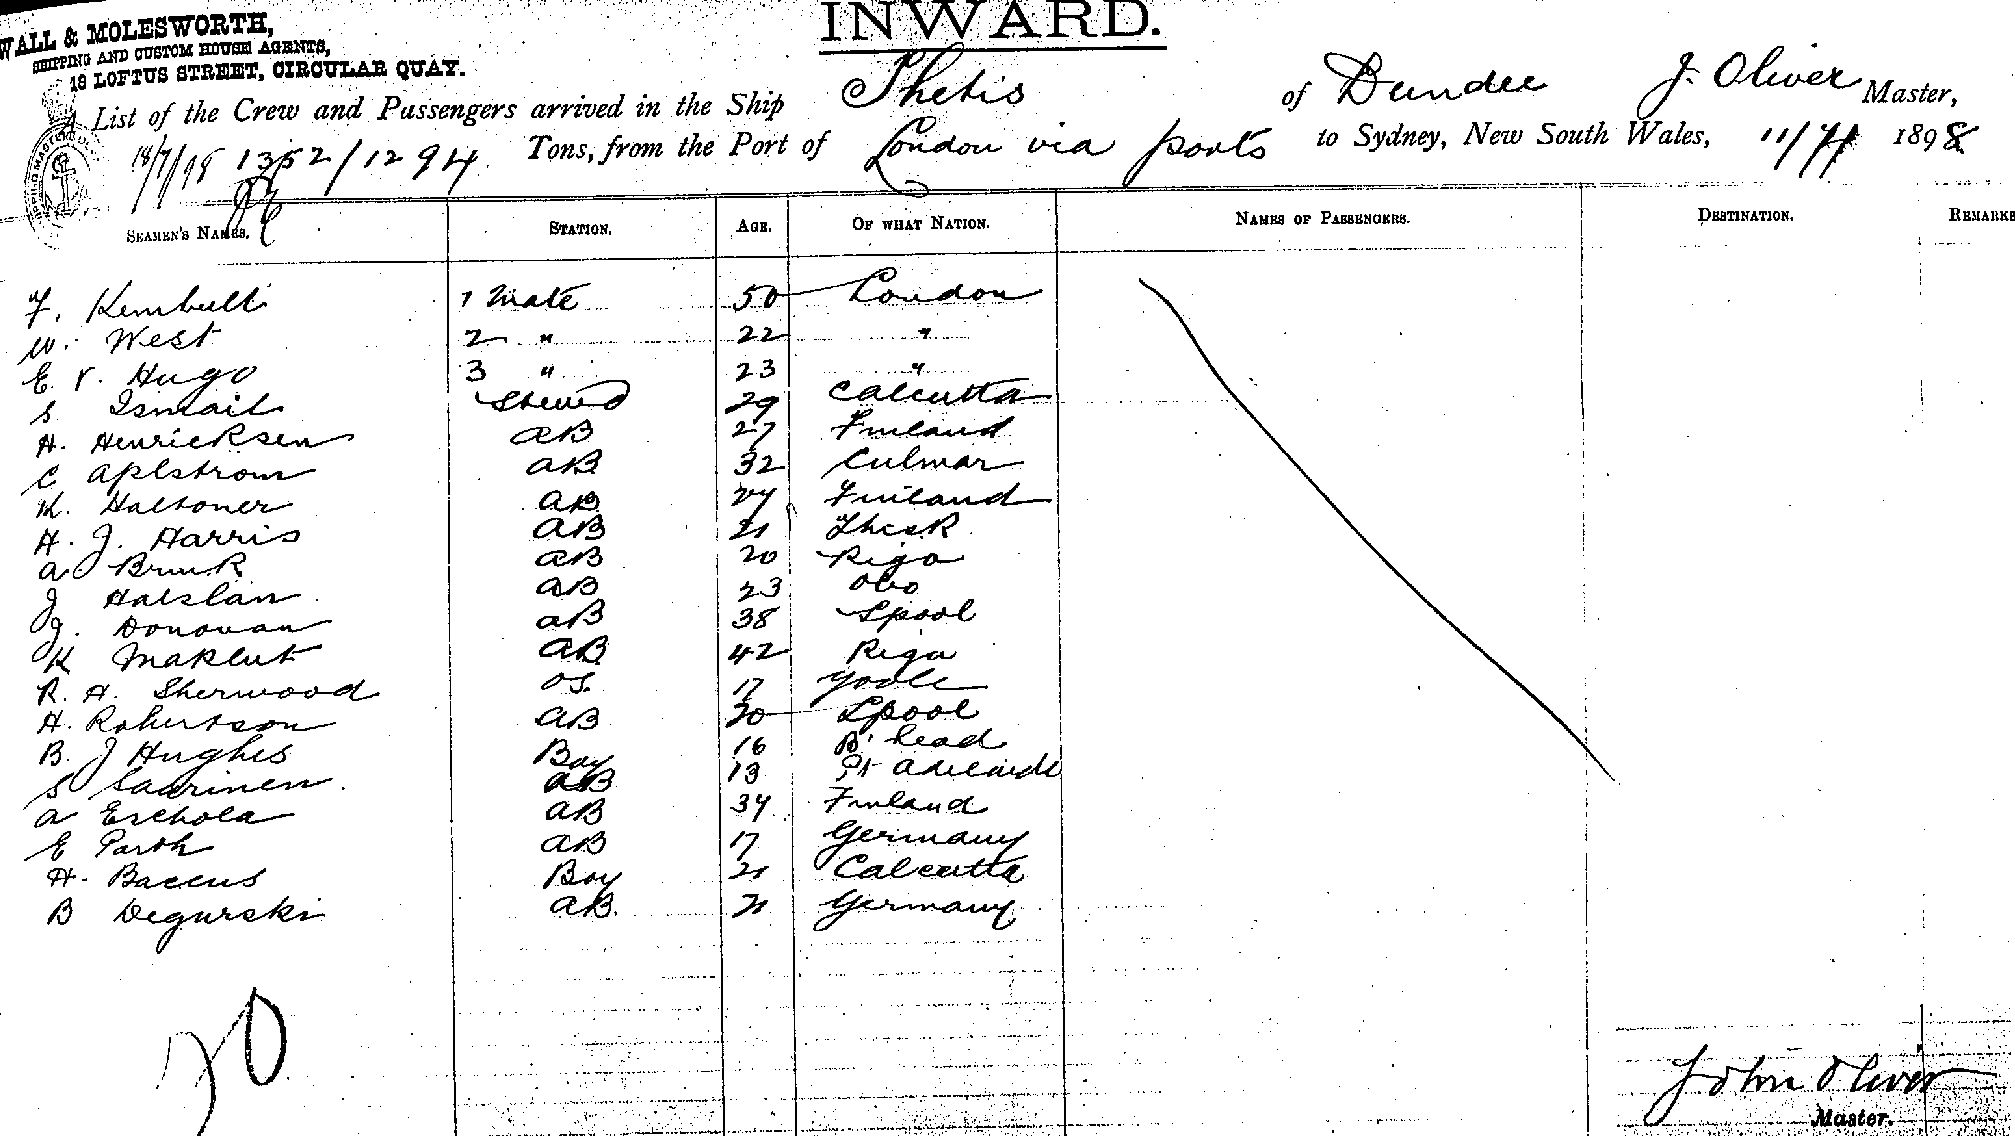 INWARD.
WALL & MOLESWORTH,
SHIPPING AND CUSTOM HOUSE AGENTS,
18 LOFTUS STREET, CIRCULAR QUAY.
A List of the Crew and Passengers arrived in the Ship Thetis of Dundee J. Oliver Master,
18/7/98 1352/1294 Tons, from the Port of London via ports to Sydney, New South Wales, 11/7 1898
SEAMEN'S NAMES. STATION. AGE. OF WHAT NATION. NAMES OF PASSENGERS. DESTINATION. REMARKS
F. Kembull 1 Mate 50 London
W. West 2 " 22 "
E. V. Hugo 3 " 23 "
S Ismail Steward 29 Calcutta
H. Henricksen AB 27 Finland
C Aplstrom AB 32 Culmar
K. Haltoner AB 24 Finland
H. J. Harris AB 21
A Brunk AB 20 Riga
J Halslan AB 23 Obo
J. Donovan AB 38 Lpool
K Maklut AB 42 Riga
R. H. Sherwood OS. 17 Goole
H. Robertson AB 20 Lpool
B. J Hughes Boy 16 B'head
S Saarinen AB 13 Pt Adelaide
A Erchola AB 34 Finland
E Parth AB 17 Germany
H. Baccus Boy 21 Calcutta
B Degurski AB. 21 Germany
20
John Oliver
Master.